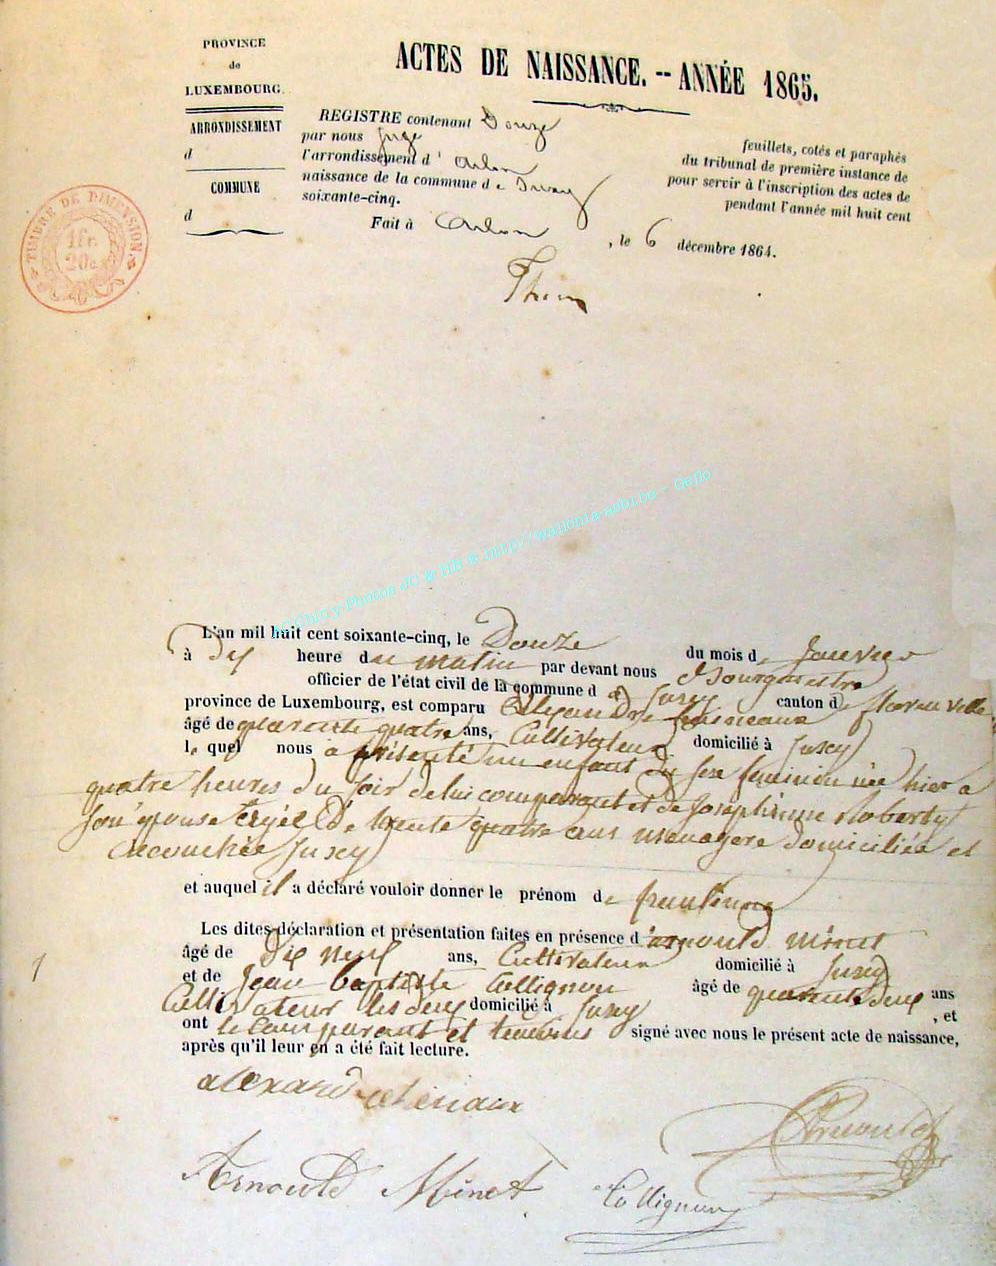 PROVINCE
de
LUXEMBOURG.
ARRONDISSEMENT
d
COMMUNE
d
ACTES DE NAISSANCE. -- ANNÉE 1865.
REGISTRE contenant Douze feuillets, cotés et paraphés
par nous juge du tribunal de première instance de
l'arrondissement d'Arlon pour servir à l'inscription des actes de
naissance de la commune de Jusey pendant l'année mil huit cent
soixante-cinq.
Fait à Arlon, le 6 décembre 1864.
TIMBRE DE DIMENSION
1 fr.
20 c.
AC Chiny Photos JC & HB & http://wallonia-asbl.be - Geflo
L'an mil huit cent soixante-cinq, le Douze du mois de Janvier
à Dix heure du matin par devant nous Bourgmestre
officier de l'état civil de la commune de Jusey canton de
province de Luxembourg, est comparu Alexandre
âgé de quarante quatre ans, Cultivateur domicilié à Jusey
lequel nous a présenté un enfant du sexe féminin née hier a
quatre heures du soir de lui comparant et de Joséphinne
son épouse âgée De trente quatre ans ménagère domiciliée et
accouchée Jusey
et auquel il a déclaré vouloir donner le prénom de
Les dites déclaration et présentation faites en présence d'arnould minet
âgé de Dix neuf ans, Cultivateur domicilié à Jusey
et de Jean baptiste Collignon âgé de quarante deux ans
Cultivateur les deux domicilié à Jusey, et
ont le comparant et temoins signé avec nous le présent acte de naissance,
après qu'il leur en a été fait lecture.
1
Arnould Minet Collignon